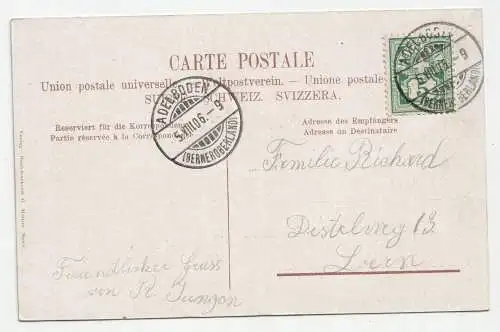 CARTE POSTALE
Union postale universelle. Weltpostverein. Unione postale
SUISSE. SCHWEIZ. SVIZZERA.
Reserviert für die Korrespondenz
Partie réservée à la Correspondance
Adresse des Empfängers
Adresse du Destinataire
ADELBODEN
5.VIII.06.-9
(BERNEROBERLAND)
ADELBODEN
5.VIII.06.-9
(BERNEROBERLAND)
5
Familie Richard
13
Freundlicher Gruss
von R.